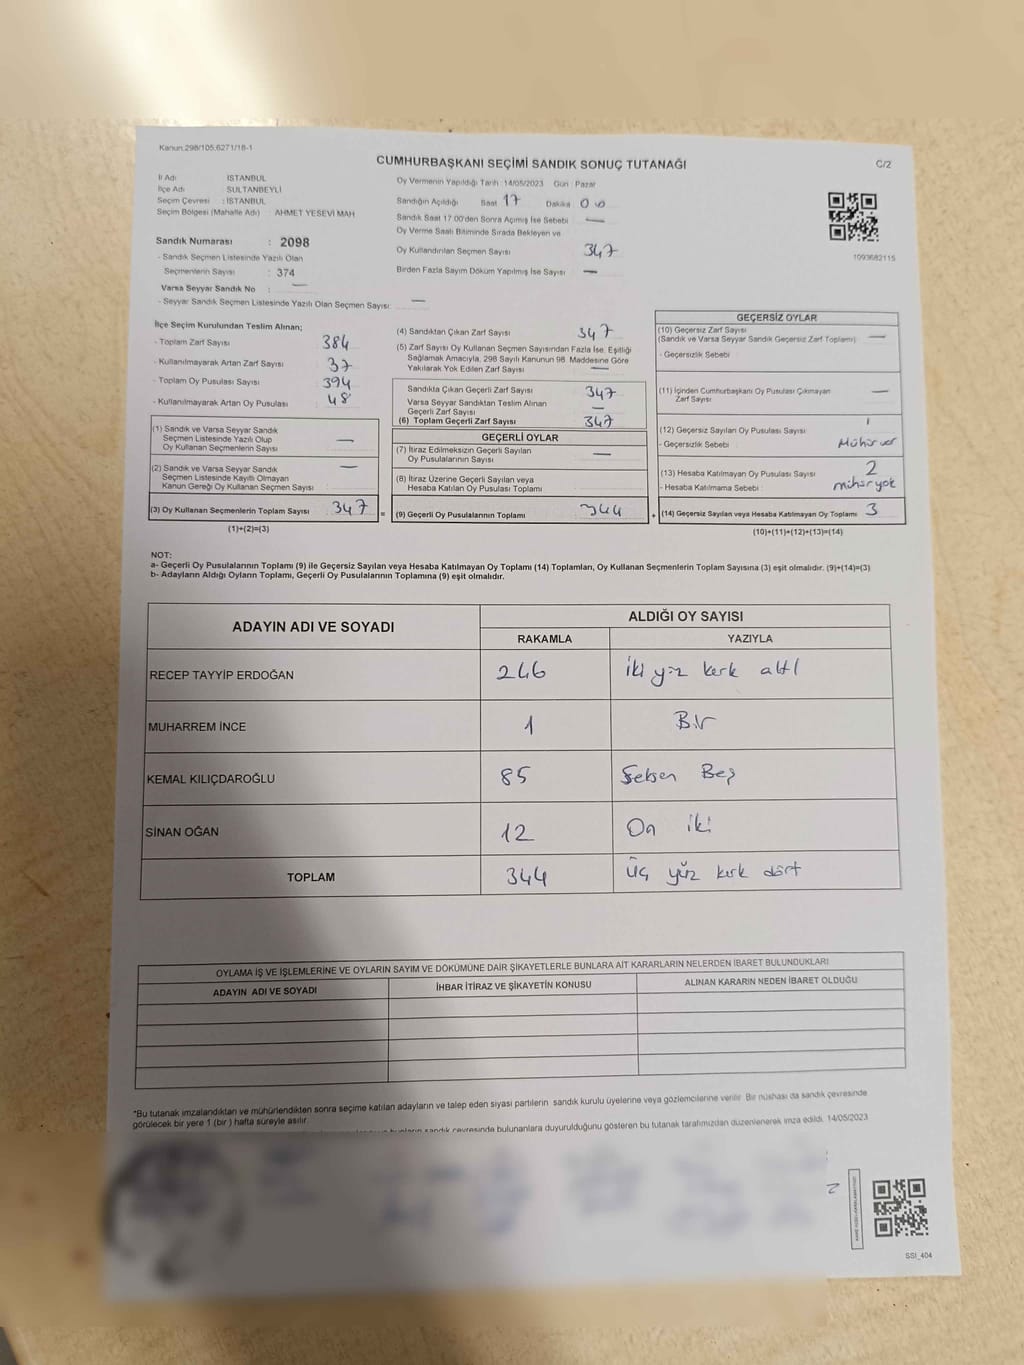 Kanun:298/105,6271/18-1
CUMHURBAŞKANI SEÇİMİ SANDIK SONUÇ TUTANAĞI
C/2
İl Adı : İSTANBUL
İlçe Adı : SULTANBEYLİ
Seçim Çevresi : İSTANBUL
Seçim Bölgesi (Mahalle Adı) : AHMET YESEVİ MAH
Sandık Numarası : 2098
- Sandık Seçmen Listesinde Yazılı Olan
Seçmenlerin Sayısı : 374
Varsa Seyyar Sandık No : —
- Seyyar Sandık Seçmen Listesinde Yazılı Olan Seçmen Sayısı: —
Oy Vermenin Yapıldığı Tarih :14/05/2023 Gün : Pazar
Sandığın Açıldığı Saat 17 Dakika 00
Sandık Saat 17.00'den Sonra Açılmış İse Sebebi —
Oy Verme Saati Bitiminde Sırada Bekleyen ve
Oy Kullandırılan Seçmen Sayısı 347
Birden Fazla Sayım Döküm Yapılmış İse Sayısı —
1093682115
İlçe Seçim Kurulundan Teslim Alınan;
- Toplam Zarf Sayısı 384
- Kullanılmayarak Artan Zarf Sayısı 37
- Toplam Oy Pusulası Sayısı 394
- Kullanılmayarak Artan Oy Pusulası 48
(1) Sandık ve Varsa Seyyar Sandık
Seçmen Listesinde Yazılı Olup
Oy Kullanan Seçmenlerin Sayısı —
(2) Sandık ve Varsa Seyyar Sandık —
Seçmen Listesinde Kayıtlı Olmayan
Kanun Gereği Oy Kullanan Seçmen Sayısı
(3) Oy Kullanan Seçmenlerin Toplam Sayısı 347 =
(1)+(2)=(3)
(4) Sandıktan Çıkan Zarf Sayısı 347
(5) Zarf Sayısı Oy Kullanan Seçmen Sayısından Fazla İse, Eşitliği
Sağlamak Amacıyla, 298 Sayılı Kanunun 98. Maddesine Göre
Yakılarak Yok Edilen Zarf Sayısı —
Sandıkta Çıkan Geçerli Zarf Sayısı 347
Varsa Seyyar Sandıktan Teslim Alınan
Geçerli Zarf Sayısı —
(6) Toplam Geçerli Zarf Sayısı 347
GEÇERLİ OYLAR
(7) İtiraz Edilmeksizin Geçerli Sayılan
Oy Pusulalarının Sayısı —
(8) İtiraz Üzerine Geçerli Sayılan veya
Hesaba Katılan Oy Pusulası Toplamı
(9) Geçerli Oy Pusulalarının Toplamı 344 +
GEÇERSİZ OYLAR
(10) Geçersiz Zarf Sayısı
(Sandık ve Varsa Seyyar Sandık Geçersiz Zarf Toplamı) —
- Geçersizlik Sebebi
(11) İçinden Cumhurbaşkanı Oy Pusulası Çıkmayan —
Zarf Sayısı
(12) Geçersiz Sayılan Oy Pusulası Sayısı 1
- Geçersizlik Sebebi : Mühür var
(13) Hesaba Katılmayan Oy Pusulası Sayısı 2
- Hesaba Katılmama Sebebi : mühür yok
(14) Geçersiz Sayılan veya Hesaba Katılmayan Oy Toplamı 3
(10)+(11)+(12)+(13)=(14)
NOT:
a- Geçerli Oy Pusulalarının Toplamı (9) ile Geçersiz Sayılan veya Hesaba Katılmayan Oy Toplamı (14) Toplamları, Oy Kullanan Seçmenlerin Toplam Sayısına (3) eşit olmalıdır. (9)+(14)=(3)
b- Adayların Aldığı Oyların Toplamı, Geçerli Oy Pusulalarının Toplamına (9) eşit olmalıdır.
ADAYIN ADI VE SOYADI
ALDIĞI OY SAYISI
RAKAMLA YAZIYLA
RECEP TAYYİP ERDOĞAN 246 iki yüz kerk altı
MUHARREM İNCE 1 Bir
KEMAL KILIÇDAROĞLU 85 Seksen Beş
SİNAN OĞAN 12 On iki
TOPLAM 344 üç yüz kırk dört
OYLAMA İŞ VE İŞLEMLERİNE VE OYLARIN SAYIM VE DÖKÜMÜNE DAİR ŞİKAYETLERLE BUNLARA AİT KARARLARIN NELERDEN İBARET BULUNDUKLARI
ADAYIN ADI VE SOYADI İHBAR İTİRAZ VE ŞİKAYETİN KONUSU ALINAN KARARIN NEDEN İBARET OLDUĞU
*Bu tutanak imzalandıktan ve mühürlendikten sonra seçime katılan adayların ve talep eden siyasi partilerin sandık kurulu üyelerine veya gözlemcilerine verilir. Bir nüshası da sandık çevresinde
görülecek bir yere 1 (bir ) hafta süreyle asılır.
sandık çevresinde bulunanlara duyurulduğunu gösteren bu tutanak tarafımızdan düzenlenerek imza edildi. 14/05/2023
SSI_404